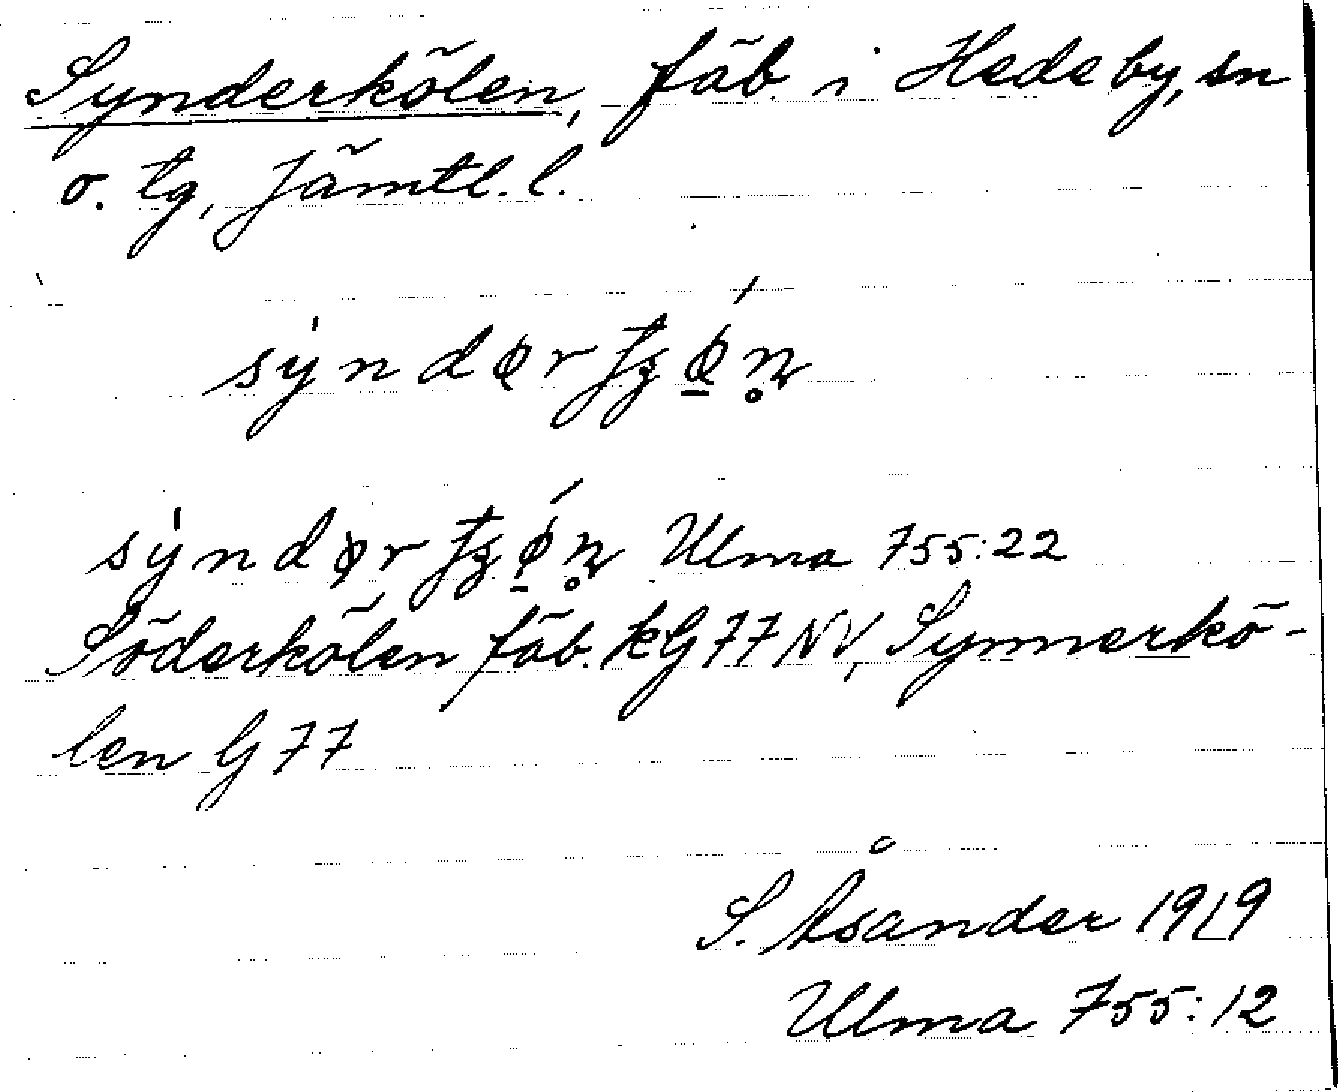 Synderkölen, fäb. i Hede by, sn
o. tg, Jämtl. l.
Ulma 755:22
Söderkölen fäb. kG77NV, Synnerkö-
len G77
S. Åsander 1919
Ulma 755:12